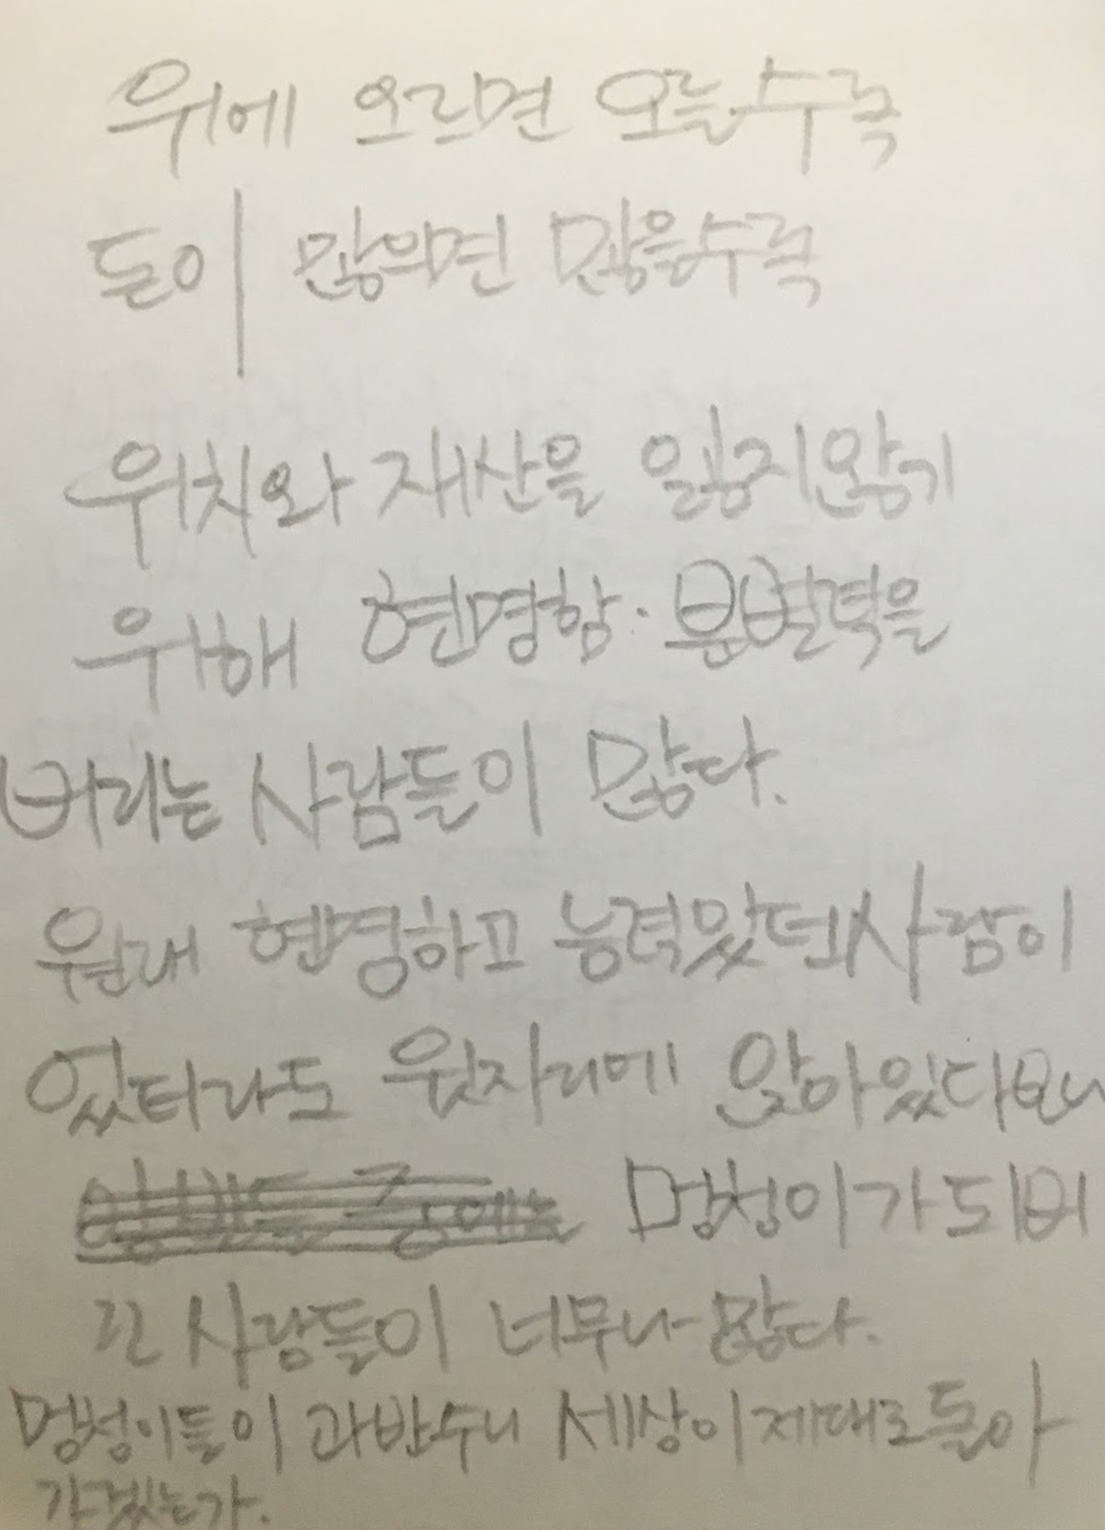 위에 오르면 오를수록
돈이 많으면 많을수록
위치와 재산을 잃지않기
위해 현명함·분별력을
버리는 사람들이 많다.
원래 현명하고 능력있던 사람이
었더라도 윗자리에 앉아있다보니
멍청이가 되버
린 사람들이 너무나 많다.
멍청이들이 과반수니 세상이 제대로 돌아
가겠는가.